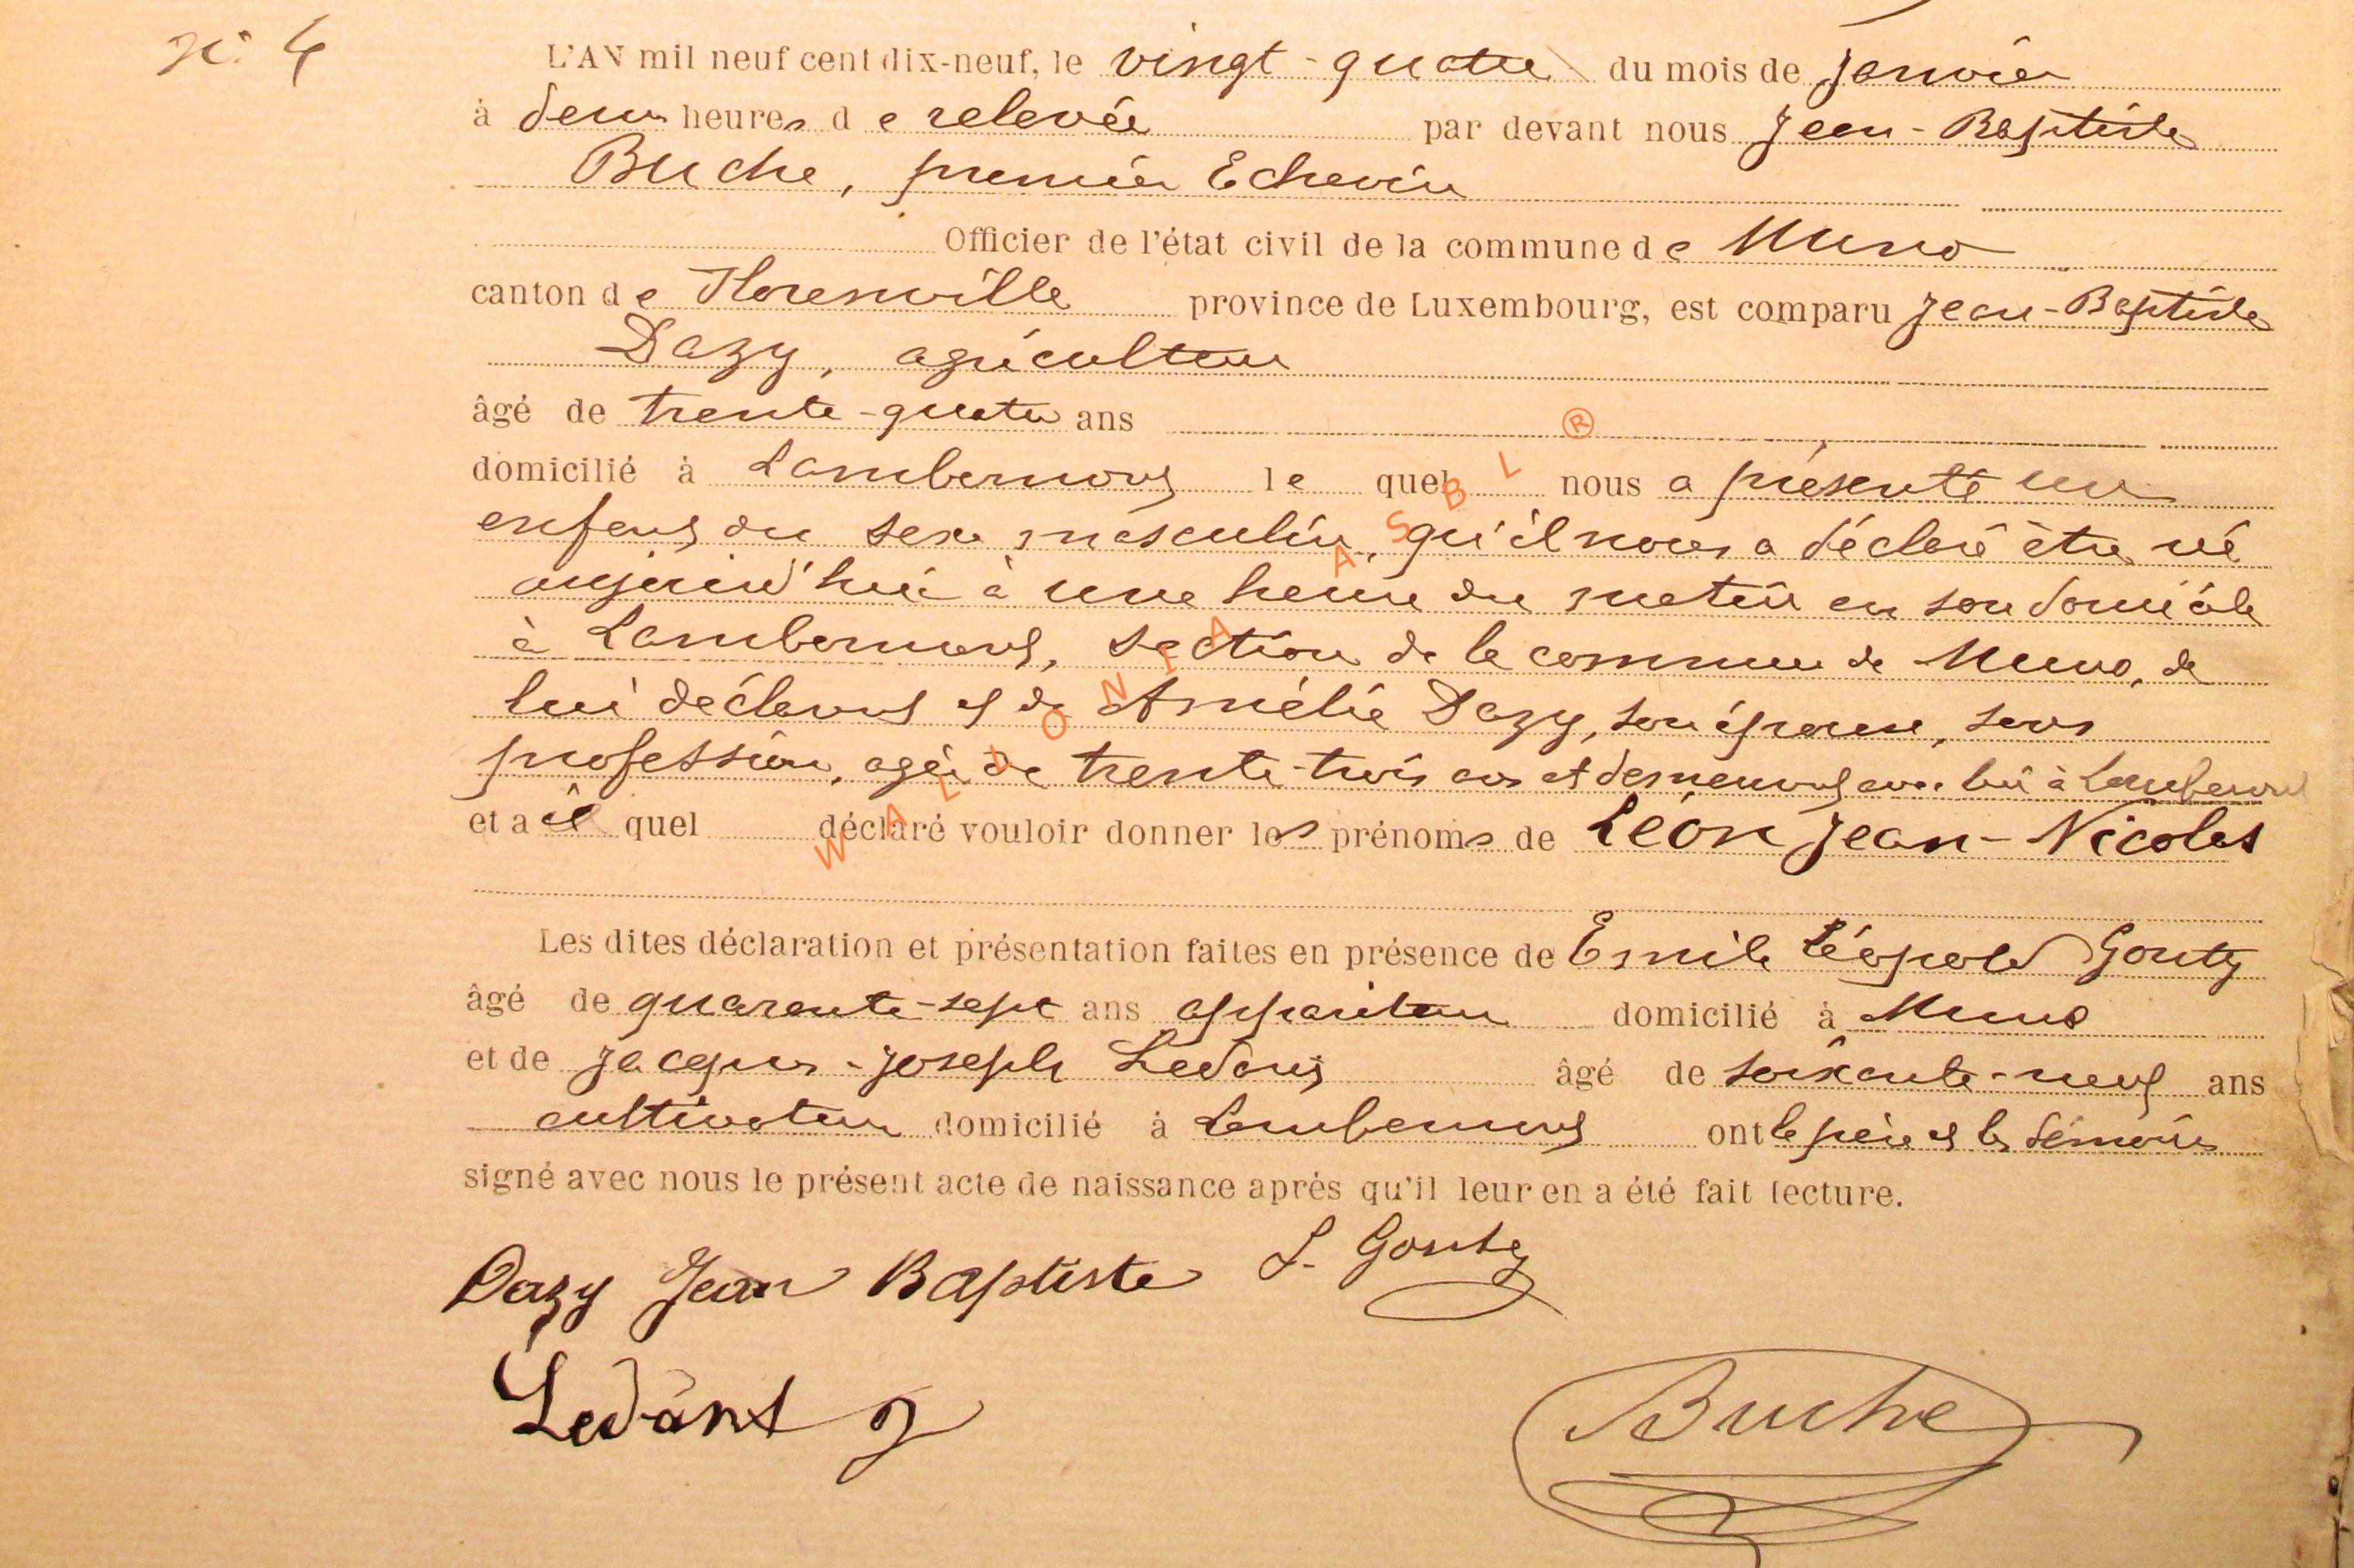 N° 4
L'AN mil neuf cent dix-neuf, le vingt-quatre du mois de Janvier
à deux heures de relevée par devant nous Jean-Baptiste
Buche, premier Echevin
Officier de l'état civil de la commune de Muno
canton de Florenville province de Luxembourg, est comparu Jean-Baptiste
Dazy, agriculteur
âgé de trente-quatre ans
domicilié à Lambermont le quel nous a présenté un
enfant du sexe masculin, qu'il nous a déclaré être né
aujourd'hui à une heure du matin en son domicile
à Lambermont, section de la commune de Muno, de
lui déclarant et de Amélie Dazy, son épouse, sans
profession, agée de trente-trois ans et demeurant avec lui à Lambermont
et a quel déclaré vouloir donner les prénoms de Léon Jean-Nicolas
Les dites déclaration et présentation faites en présence de Emile Léopold Gouty
âgé de quarante-sept ans appariteur domicilié à Muno
et de Jacques-Joseph Ledant âgé de soixante-neuf ans
cultivateur domicilié à Lambermont ont le père et les témoins
signé avec nous le présent acte de naissance après qu'il leur en a été fait lecture.
Dazy Jean Baptiste L. Gouty
Ledant J
Buche
WALLONIA ASBL ®